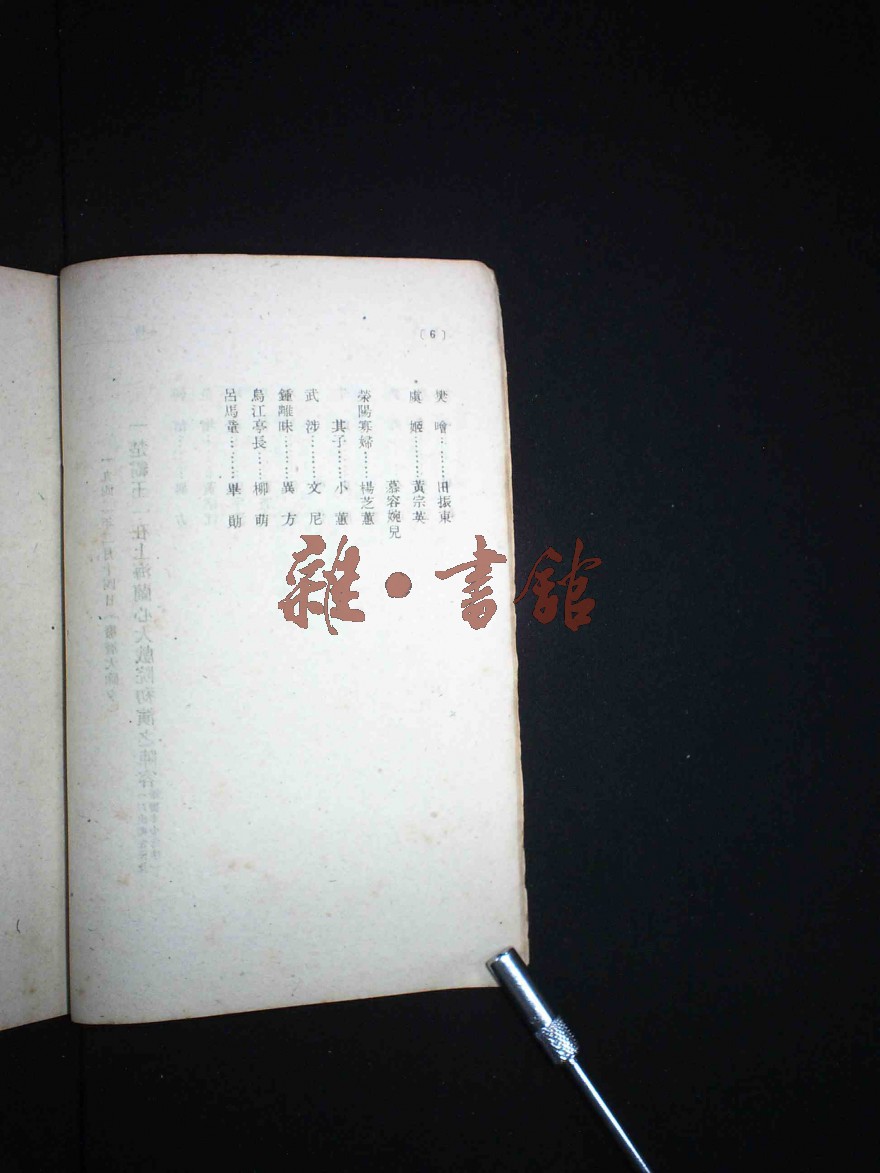 〔6〕
樊噲………田振東
虞姬………黃宗英
慕容婉兒
榮陽寡婦……楊芝蕙
其子……小蕙
武涉………文尼
鍾離昧………異方
烏江亭長……柳萌
呂馬童………畢勛
雜·書館